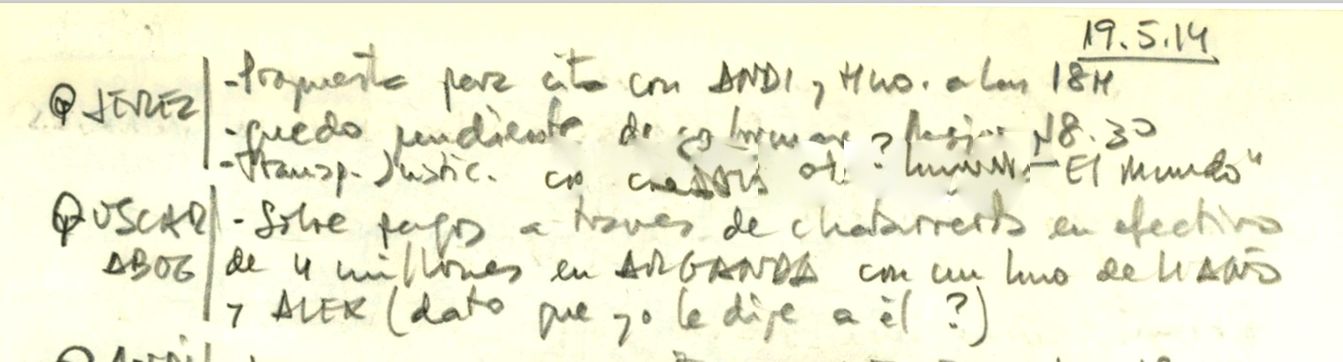 19.5.14
JEREZ - Propuesta para cita con ANDI y Hno. a las 18H
- quedo pendiente de confirmar ? Mejor 18.30
- Transp. Justic. "El Mundo"
OSCAR - Sobre pagos a traves de chatarrero en efectivo
ABOG de 4 millones en ARGANDA con un hno de
y ALEX (dato que yo le dije a él?)